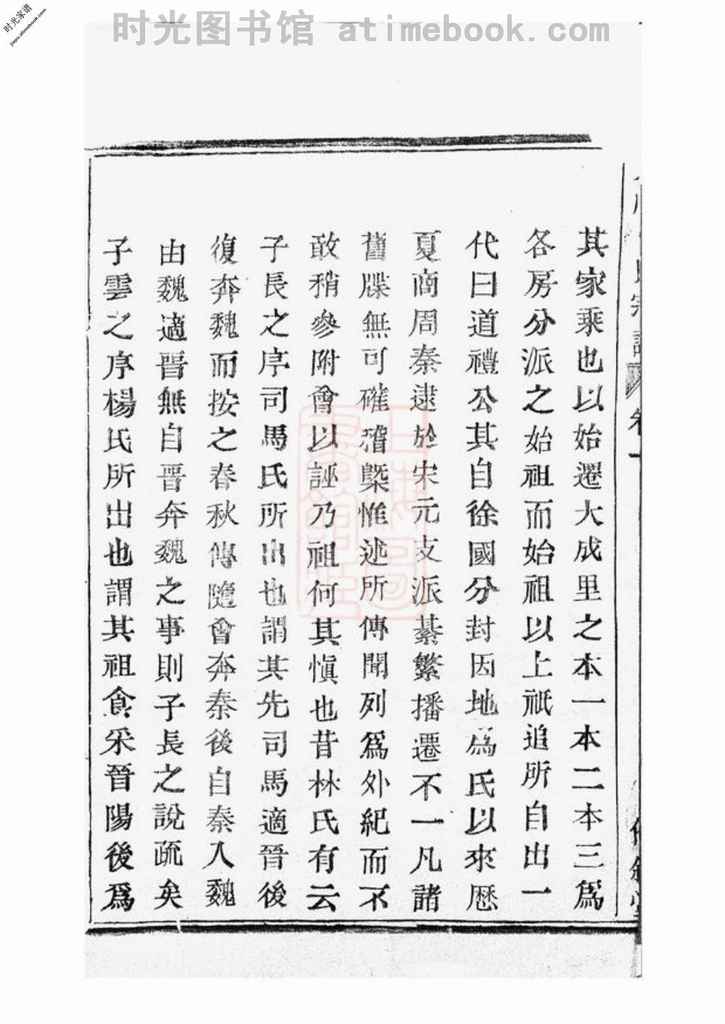 时光图书馆 atimebook.com
时光家谱
其家乘也以始遷大成里之本一本二本三爲
各房分派之始祖而始祖以上祇追所自出一
代曰道禮公其自徐國分封因地爲氏以來歷
夏商周秦逮於宋元支派綦繁播遷不一凡諸
舊牒無可確稽槩惟述所傳聞列爲外紀而不
敢稍參附會以誣乃祖何其愼也昔林氏有云
子長之序司馬氏所出也謂其先司馬適晉後
復奔魏而按之春秋傳隨會奔秦後自秦入魏
由魏適晉無自晉奔魏之事則子長之說疏矣
子雲之序楊氏所出也謂其祖食采晉陽後爲